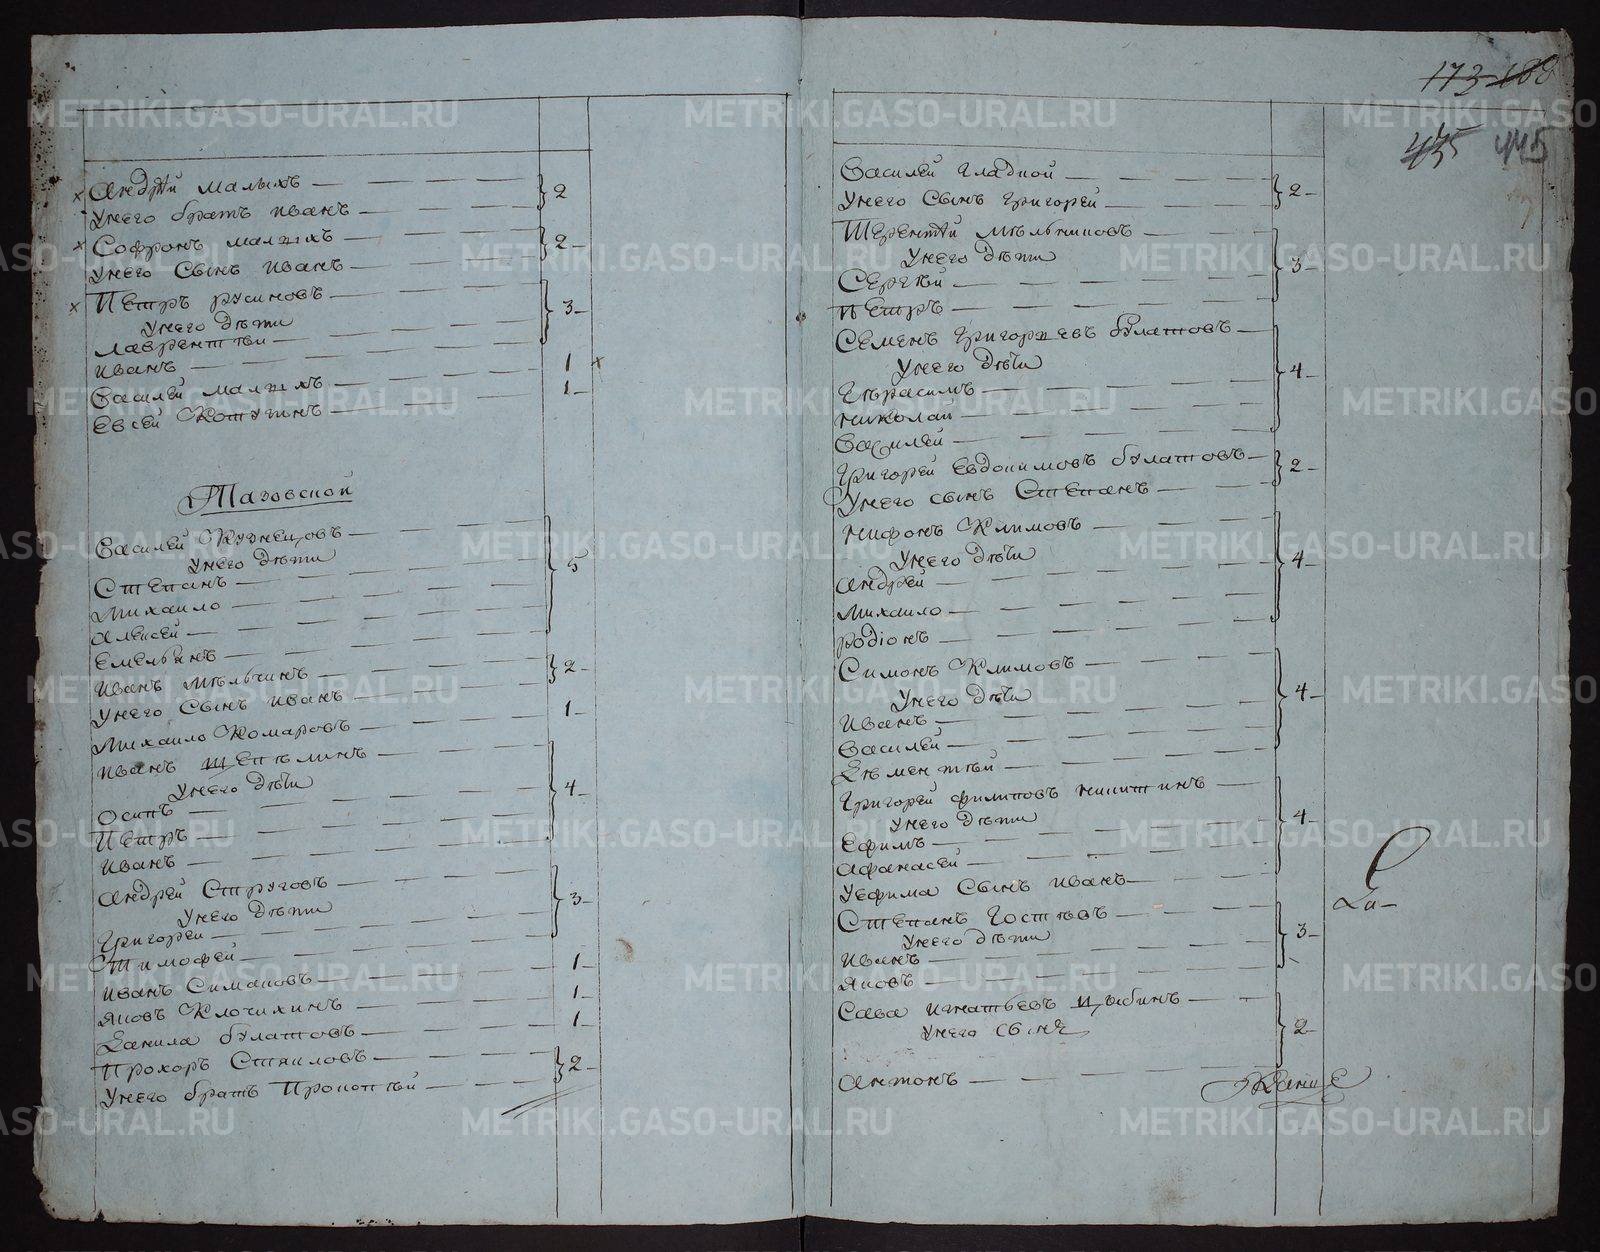 173 188
435 445
Андрѣй Малыхъ 2
Унего братъ Иванъ
Софронъ Малыхъ 2
Унего Сынъ Иванъ
Петръ Русиновъ 3
Унего дѣти
Лаврентѣи
Иванъ
Василей Малыхъ 1
Евсей Котугинъ 1
Таговской
Василей Кузнецовъ 5
Унего дѣти
Степанъ
Михаило
Алексей
Емельянъ
Иванъ Мѣльчинъ 2
Унего Сынъ Иванъ
Михаило Комаровъ 1
Иванъ Щепѣлинъ 4
Унего дѣти
Осипъ
Петръ
Иванъ
Андрей Струговъ 3
Унего дѣти
Григорей
Тимофей
Иванъ Симановъ 1
Яковъ Клочихинъ 1
Данила Булатовъ 1
Прохоръ 2
Унего братъ Прокопѣй
Василей Гладкой 2
Унего Сынъ Григорей
Терентѣй Мѣльниковъ 3
Унего дѣти
Сергѣй
Петръ
Семенъ Григорьевъ Булатовъ 4
Унего дѣти
Гѣрасимъ
Николай
Василей
Григорей Евдокимовъ Булатовъ 2
Унего сынъ Степанъ
Нифонъ Климовъ 4
Унего дѣти
Андрей
Михаило
Родіонъ
Симонъ Климовъ 4
Унего дѣти
Иванъ
Василей
Клѣментѣй
Григорей Филиповъ Никитинъ 4
Унего дѣти
Ефимъ
Афанасей
Уефима Сынъ Иванъ
Степанъ Гостѣвъ 3
Унего дѣти
Иванъ
Яковъ
Сава Игнатьевъ Цыбинъ 2
Унего Сынъ
Антонъ